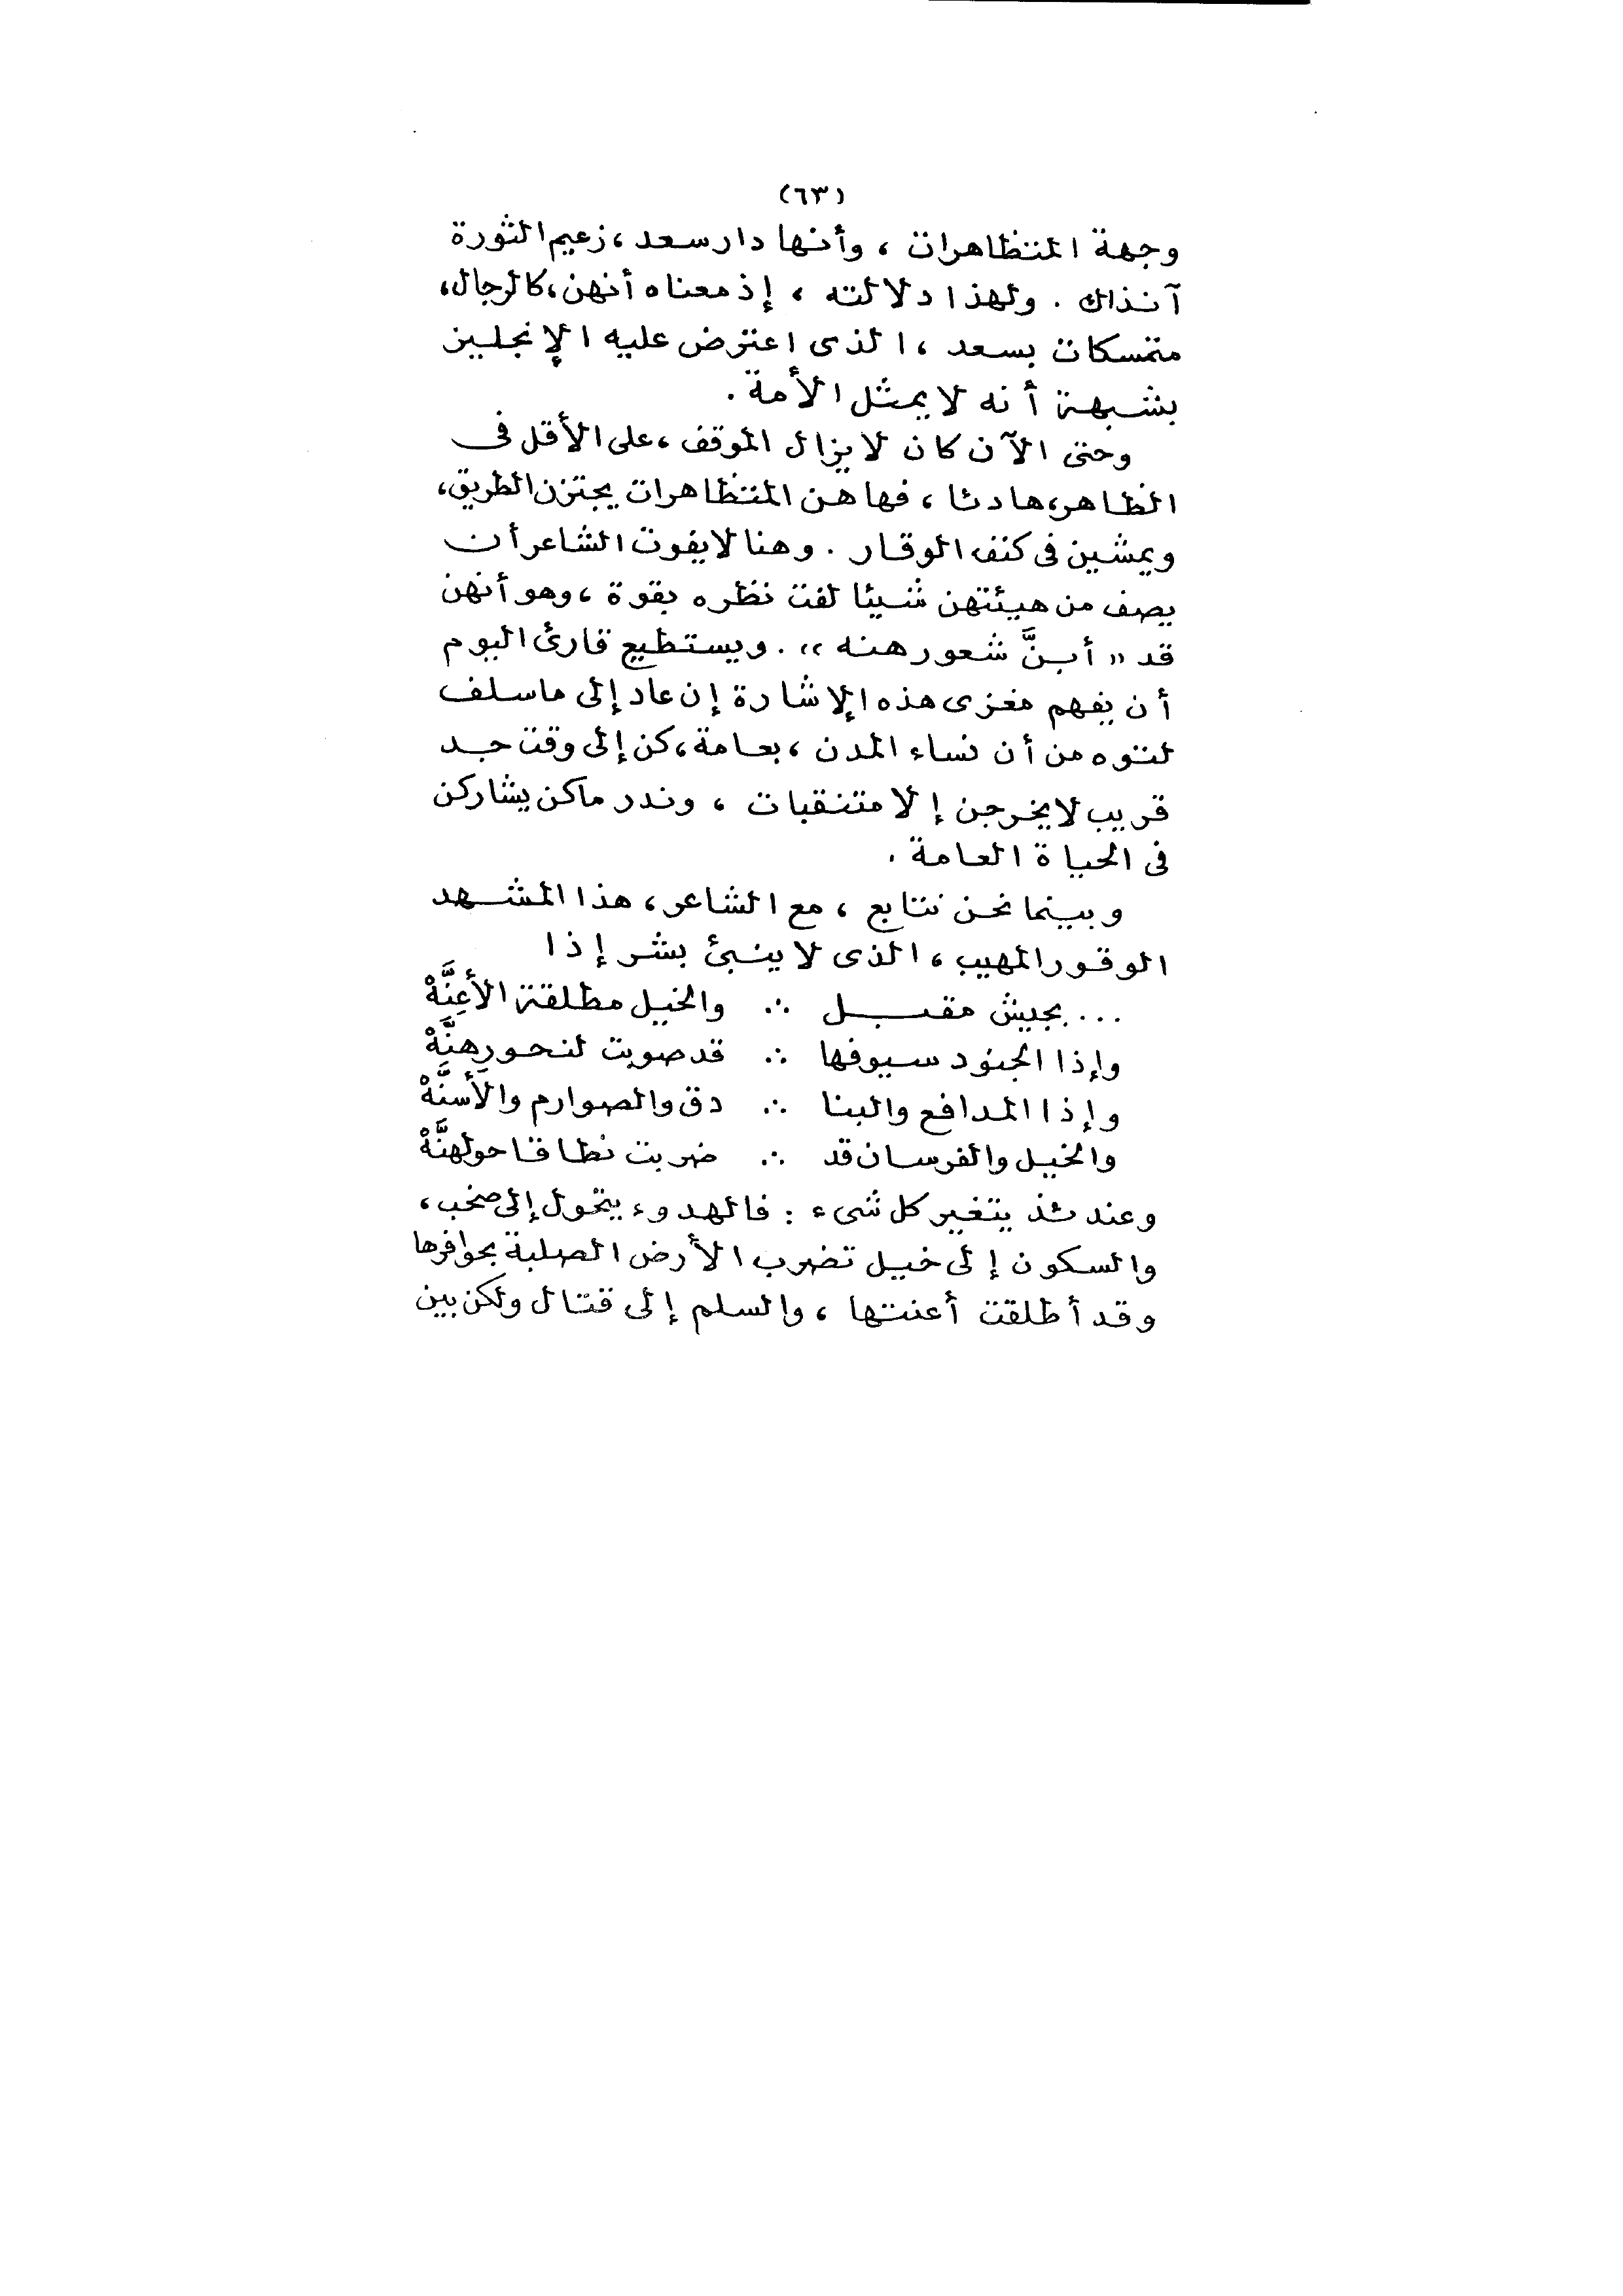 (٦٣)
وجهة المتظاهرات ، وأنها دار سعد ، زعيم الثورة
آنذاك . ولهذا دلالته ، إذ معناه أنهن ، كالرجال ،
متمسكات بسعد ، الذى اعترض عليه الإنجليز
بشبهة أنه لا يمثل الأمة .
وحتى الآن كان لا يزال الموقف ، على الأقل فى
الظاهر ، هادئا ، فها هن المتظاهرات يجتزن الطريق ،
ويمشين فى كنف الوقار . وهنا لا يفوت الشاعر أن
يصف من هيئتهن شيئا لفت نظره بقوة ، وهو أنهن
قد « أبنَّ شعورهنه » . ويستطيع قارئ اليوم
أن يفهم مغزى هذه الإشارة إن عاد إلى ما سلف
لتوه من أن نساء المدن ، بعامة ، كن إلى وقت جد
قريب لا يخرجن إلا متنقبات ، وندر ما كن يشاركن
فى الحياة العامة .
وبينما نحن نتابع ، مع الشاعر ، هذا المشهد
الوقور المهيب ، الذى لا ينبئ بشر إذا
... بجيش مقبل ∴ والخيل مطلقة الأعِنَّهْ
وإذا الجنود سيوفها ∴ قد صوبت لنحورِهِنَّهْ
وإذا المدافع والبنا ∴ دق والصوارم والأسنَّهْ
والخيل والفرسان قد ∴ ضربت نطاقا حولهنَّهْ
وعندئذ يتغير كل شىء : فالهدوء يتحول إلى صخب ،
والسكون إلى خيل تضرب الأرض الصلبة بحوافرها
وقد أطلقت أعنتها ، والسلم إلى قتال ولكن بين